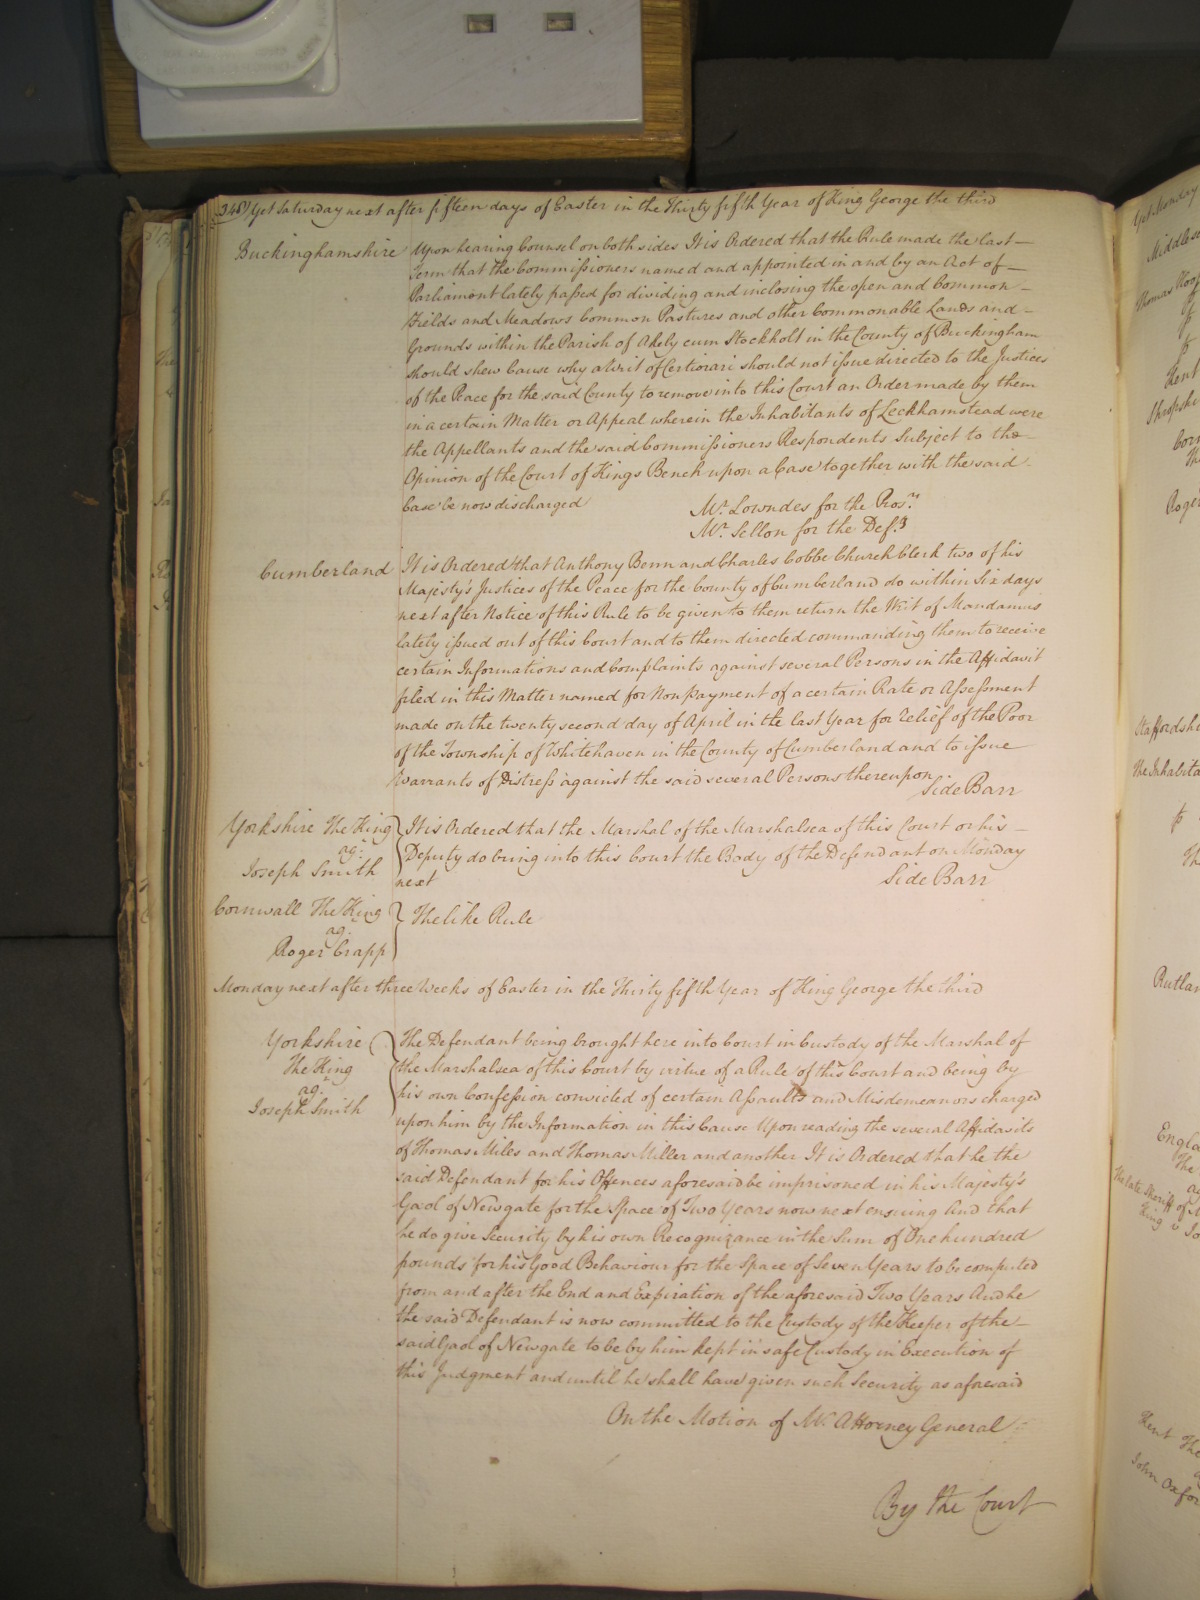 348) Yet Saturday next after fifteen days of Easter in the Thirty fifth Year of King George the third
Buckinghamshire Upon hearing Counsel on both sides It is Ordered that the Rule made the last
Term that the Commissioners named and appointed in and by an Act of
Parliament lately passed for dividing and inclosing the open and Common
Fields and Meadows Common Pastures and other Commonable Lands and
Grounds within the Parish of Akely cum Stockholt in the County of Buckingham
should shew Cause why a Writ of Certiorari should not issue directed to the Justices
of the Peace for the said County to remove into this Court an Order made by them
in a certain Matter or Appeal wherein the Inhabitants of Leckhamstead were
the Appellants and the said Commissioners Respondents Subject to the
Opinion of the Court of Kings Bench upon a Case together with the said
Case be now discharged
Mr. Lowndes for the Prosr.
Mr. Sellon for the Deft.
Cumberland It is Ordered that Anthony Benn and Charles Cobbe Church Clerk two of his
Majesty's Justices of the Peace for the County of Cumberland do within Six days
next after Notice of this Rule to be given to them return the Writ of Mandamus
lately issued out of this Court and to them directed commanding them to receive
certain Informations and Complaints against several Persons in the Affidavit
filed in this Matter named for Non payment of a certain Rate or Assessment
made on the twenty second day of April in the last Year for relief of the Poor
of the Township of Whitehaven in the County of Cumberland and to issue
Warrants of Distress against the said several Persons thereupon
Side Barr
Yorkshire The King
agt.
Joseph Smith
It is Ordered that the Marshal of the Marshalsea of this Court or his
Deputy do bring into this Court the Body of the Defendant on Monday
next
Side Barr
Cornwall The King
agt.
Roger Crapp
The like Rule
Monday next after three Weeks of Easter in the Thirty fifth Year of King George the third
Yorkshire
The King
agt.
Joseph Smith
The Defendant being brought here into Court in Custody of the Marshal of
the Marshalsea of this Court by virtue of a Rule of this Court and being by
his own Confession convicted of certain Assaults and Misdemeanors charged
upon him by the Information in this Cause Upon reading the several Affidavits
of Thomas Miles and Thomas Miller and another It is Ordered that he the
said Defendant for his Offences aforesaid be imprisoned in his Majesty's
Gaol of Newgate for the Space of Two Years now next ensuing And that
he do give Security by his own Recognizance in the Sum of One hundred
pounds for his Good Behaviour for the Space of Seven Years to be computed
from and after the End and Expiration of the aforesaid Two Years And he
the said Defendant is now committed to the Custody of the Keeper of the
said Gaol of Newgate to be by him kept in safe Custody in Execution of
this Judgment and until he shall have given such Security as aforesaid
On the Motion of Mr. Attorney General
By the Court
Yet Monday
Thomas
Kent
Roger
The Inhabita
The
The late Sheriff of
Kent The
John Oxfor